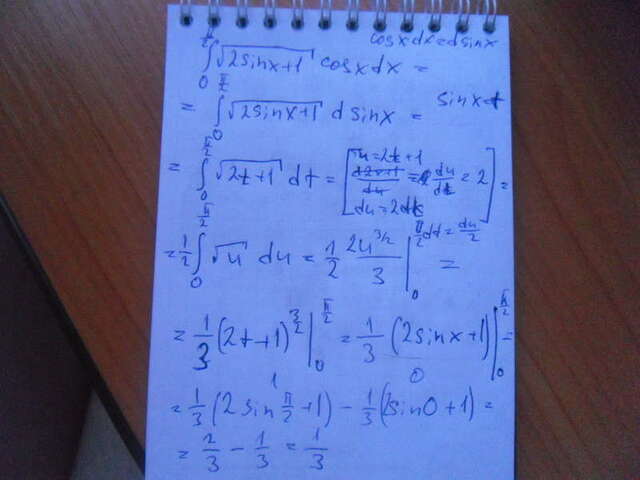 cosxdx=dsinx
∫₀^{π/2} √(2sinx+1) cosxdx =
= ∫₀^{π/2} √(2sinx+1) dsinx = sinx=t
= ∫₀^{π/2} √(2t+1) dt = [u=2t+1 du/dt=2 du=2dt] =
dt=du/2
= 1/2 ∫₀^{π/2} √u du = 1/2 2u^{3/2}/3 |₀^{π/2} =
= 1/3 (2t+1)^{3/2} |₀^{π/2} = 1/3 (2sinx+1) |₀^{π/2} =
1 0
= 1/3 (2sin π/2 +1) − 1/3 (2sin0+1) =
= 2/3 − 1/3 = 1/3